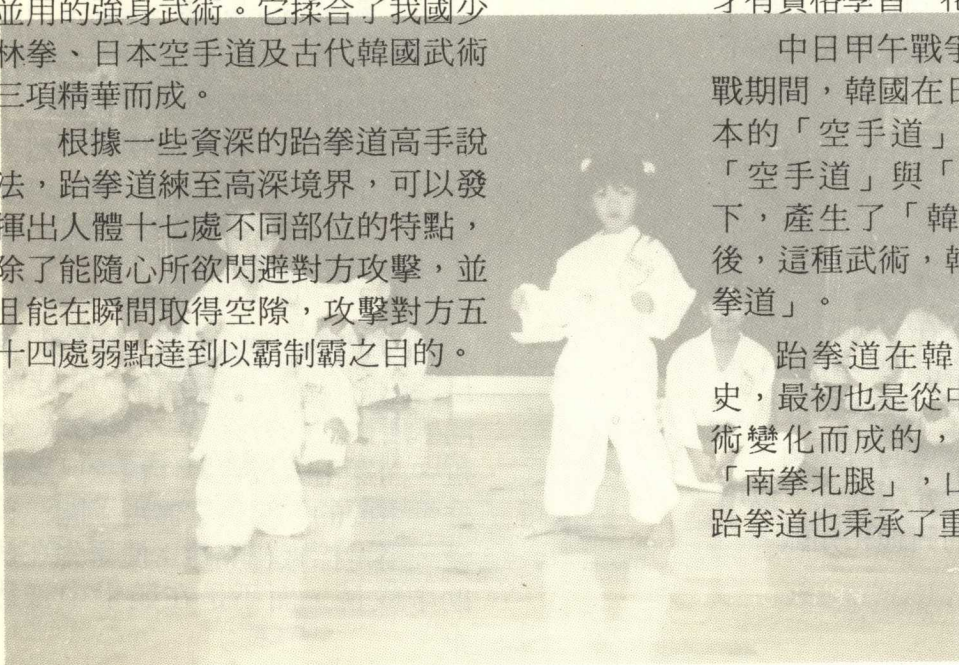 並用的強身武術。它揉合了我國少
林拳、日本空手道及古代韓國武術
三項精華而成。
根據一些資深的跆拳道高手說
法，跆拳道練至高深境界，可以發
揮出人體十七處不同部位的特點，
除了能隨心所欲閃避對方攻擊，並
且能在瞬間取得空隙，攻擊對方五
十四處弱點達到以霸制霸之目的。
才有資格學習
中日甲午戰爭
戰期間，韓國在日
本的「空手道」
「空手道」與「
下，產生了「韓
後，這種武術，韓
拳道」。
跆拳道在韓
史，最初也是從中
術變化而成的，
「南拳北腿」，山
跆拳道也秉承了重